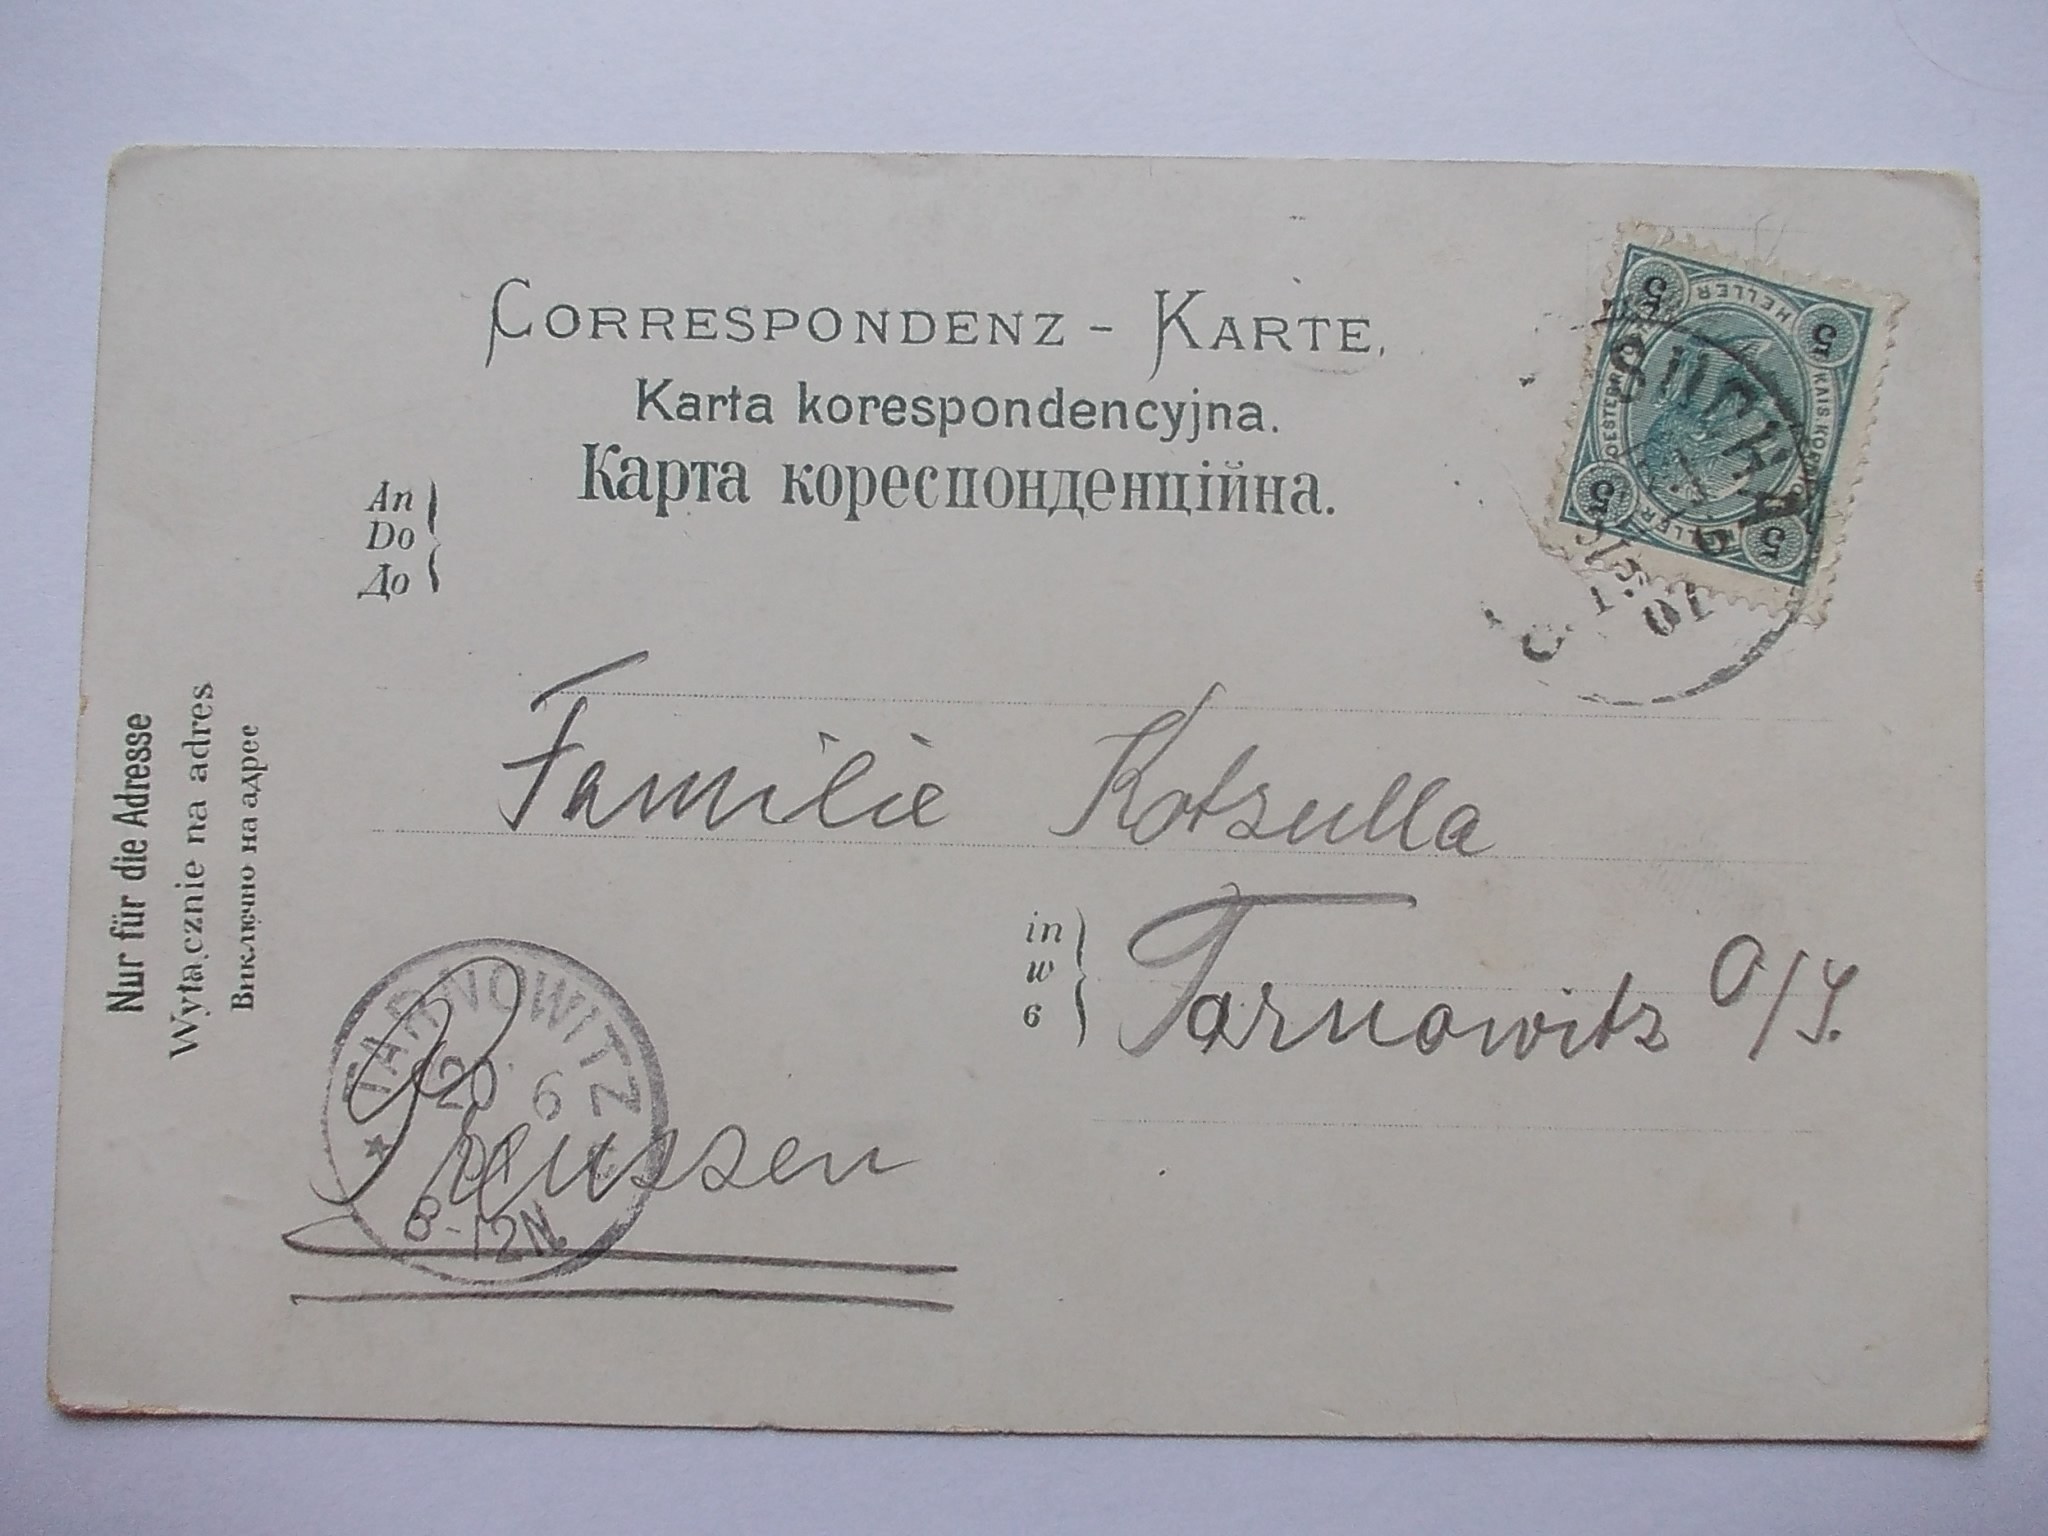 CORRESPONDENZ - KARTE.
Karta korespondencyjna.
Карта кореспонденційна.
An
Do
До
5 HELLER 5
KAIS. KOENIGL.
OESTERR.
5 HELLER 5
SUCHA
01
Familie Kotzulla
in
w
в
Tarnowitz O/S.
Preussen
TARNOWITZ
20 6
01
8-12N.
Nur für die Adresse
Wyłącznie na adres
Виключно на адрес